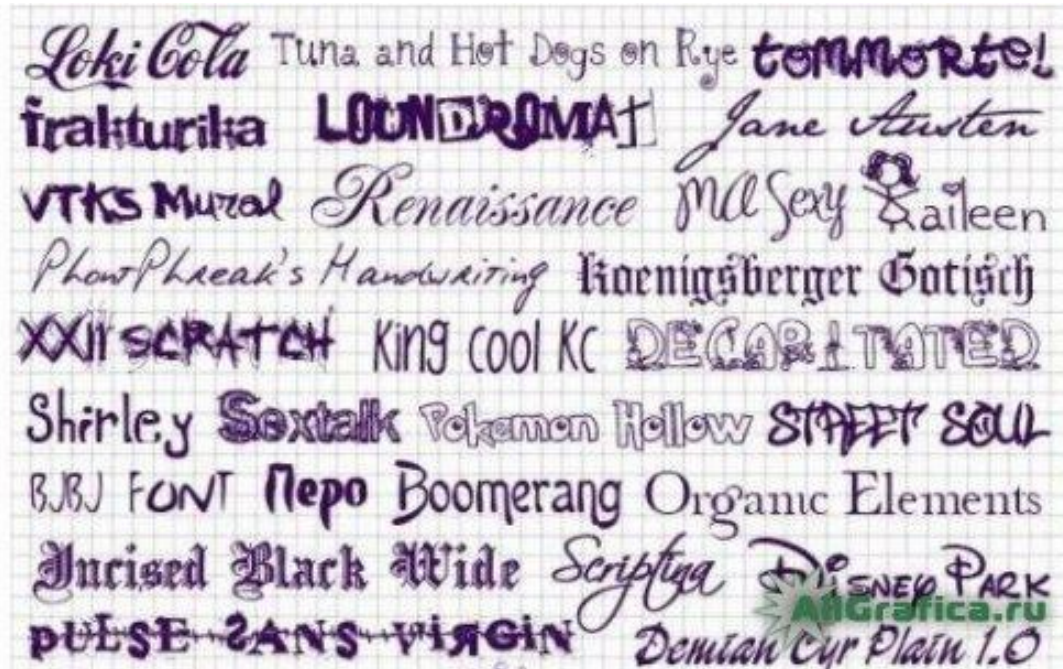 Loki Cola Tuna and Hot Dogs on Rye tommortel
frakturika LOUNDROMAT Jane Austen
VTKS Mural Renaissance MA Sexy Raileen
PhontPhreak's Handwriting Koenigsberger Gotisch
XXII SCRATCH King cool KC DECAPITATED
Shirley Sextalk Pokemon Hollow STREET SOUL
BJBJ FONT Перо Boomerang Organic Elements
Incised Black Wide Scriptina Disney Park
pULSE SANS ViRGiN Demian Cyr Plain 1.0
AllGrafica.ru